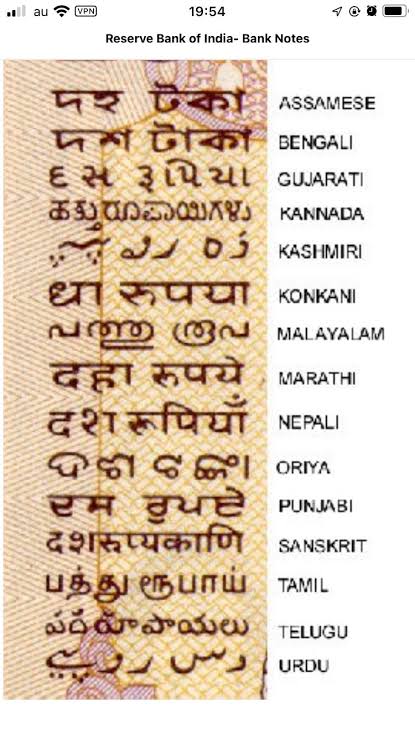 au VPN 19:54
Reserve Bank of India- Bank Notes
দহ টকা ASSAMESE
দশ টাকা BENGALI
દસ રૂપિયા GUJARATI
ಹತ್ತು ರೂಪಾಯಿಗಳು KANNADA
KASHMIRI
धा रुपया KONKANI
പത്തു രൂപ MALAYALAM
दहा रुपये MARATHI
दश रुपियाँ NEPALI
ଦଶ ଟଙ୍କା ORIYA
ਦਸ ਰੁਪਏ PUNJABI
दशरूप्यकाणि SANSKRIT
பத்து ரூபாய் TAMIL
పది రూపాయలు TELUGU
دس URDU